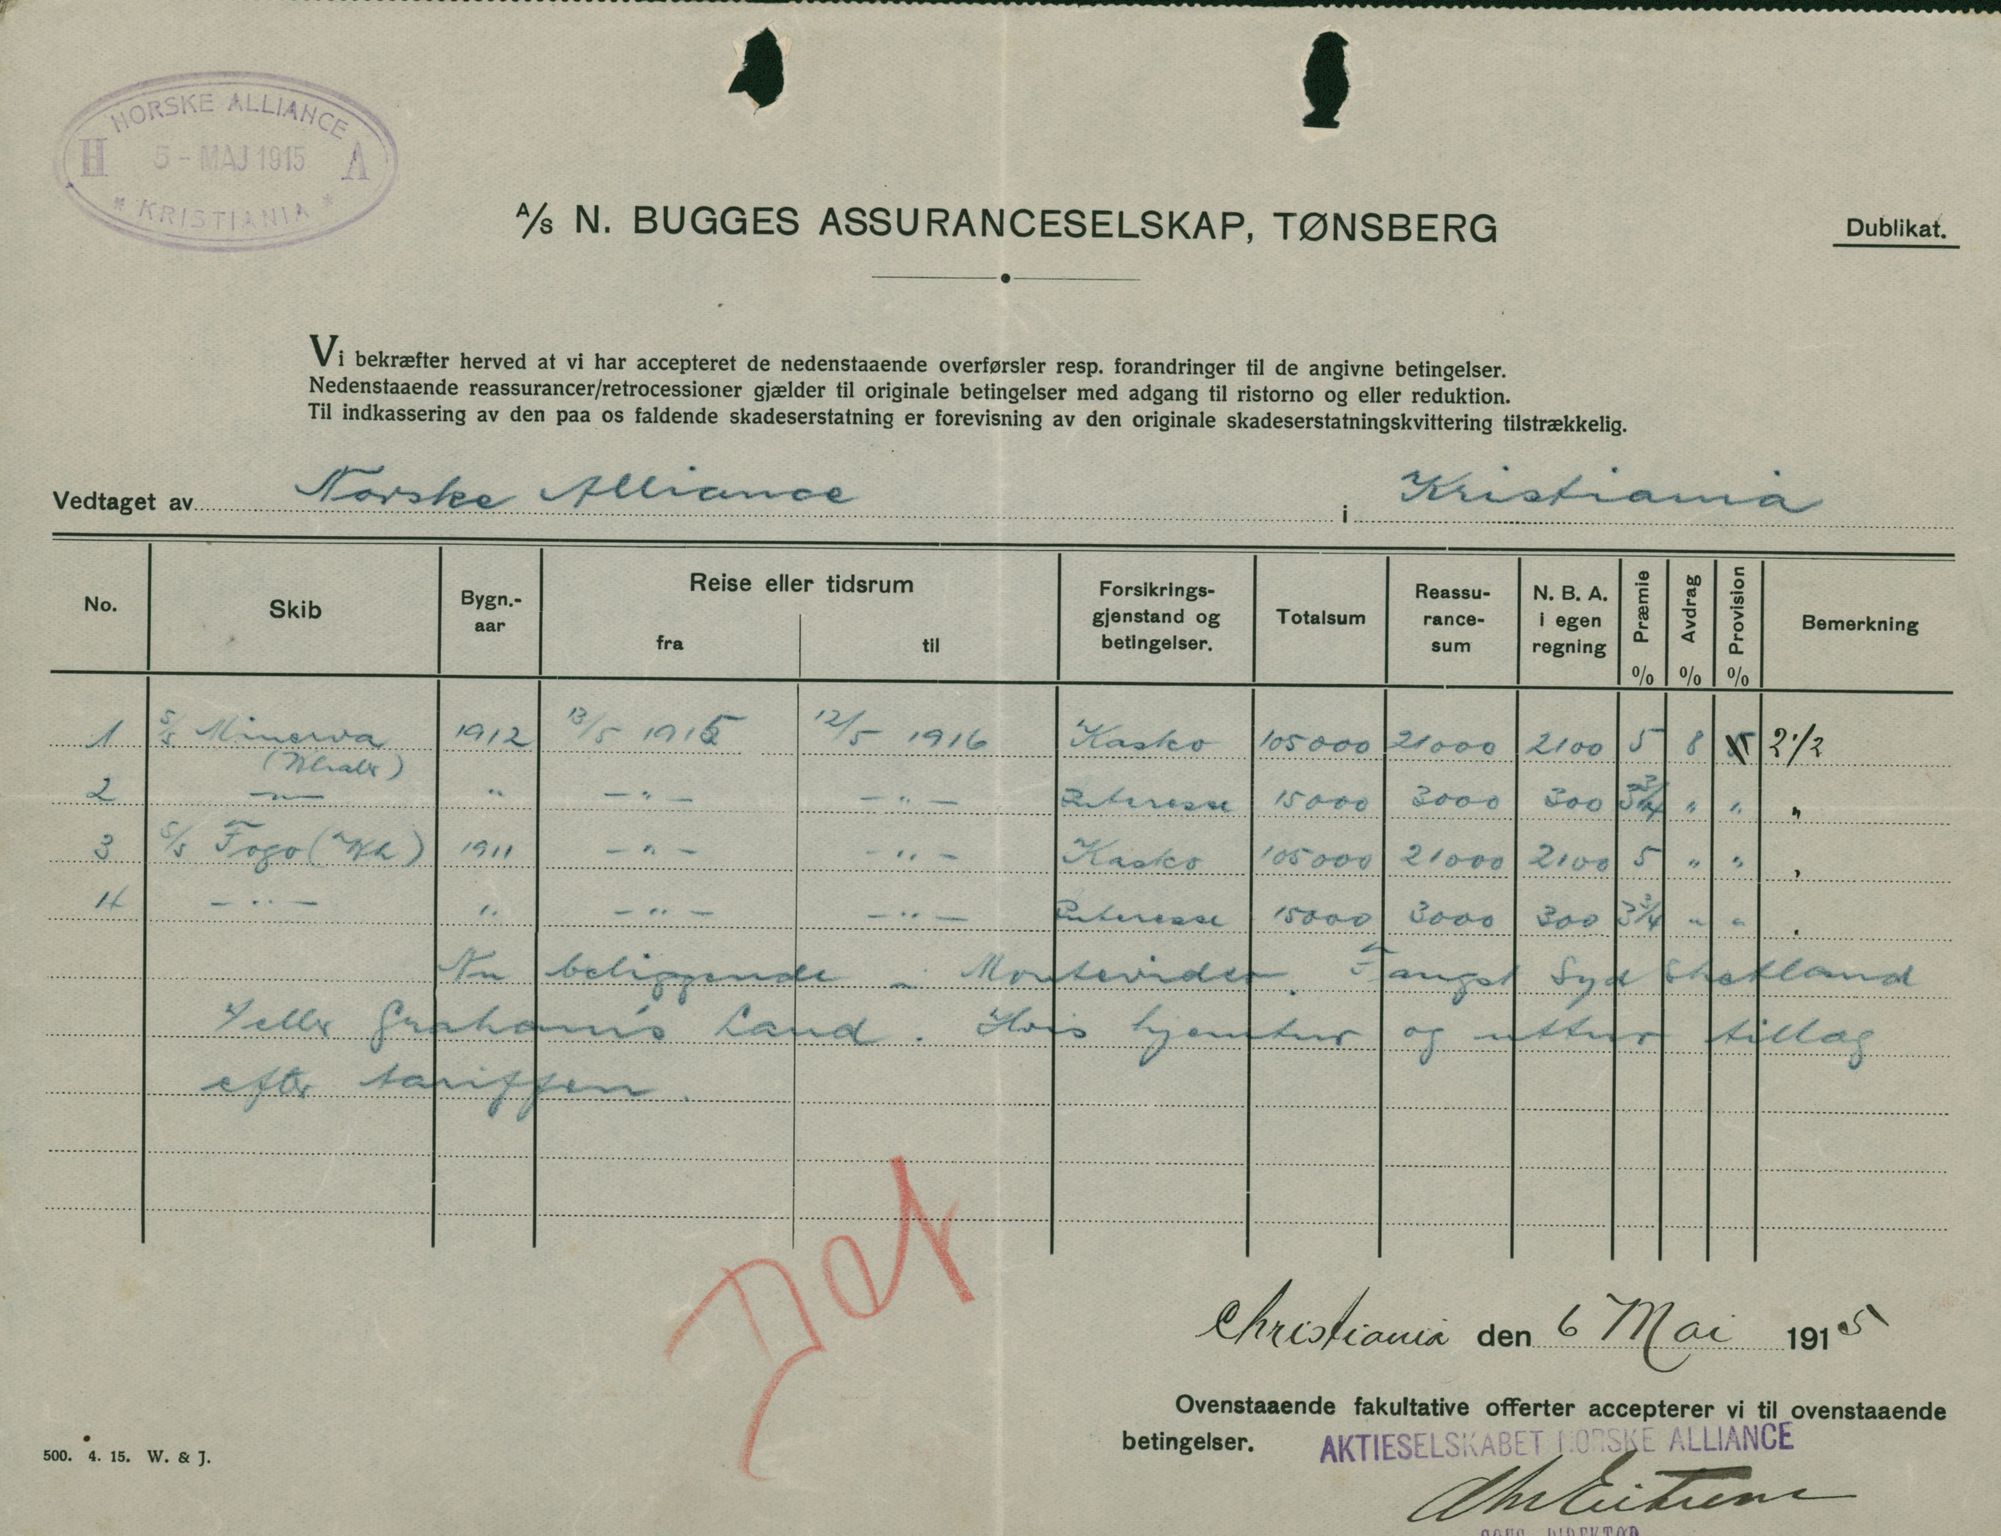 NORSKE ALLIANCE
H 5 - MAJ 1915 A
* KRISTIANIA *
A/s N. BUGGES ASSURANCESELSKAP, TØNSBERG
Dublikat.
Vi bekræfter herved at vi har accepteret de nedenstaaende overførsler resp. forandringer til de angivne betingelser.
Nedenstaaende reassurancer/retrocessioner gjælder til originale betingelser med adgang til ristorno og eller reduktion.
Til indkassering av den paa os faldende skadeserstatning er forevisning av den originale skadeserstatningskvittering tilstrækkelig.
Vedtaget av Norske Alliance i Kristiania
No. Skib Bygn.-aar Reise eller tidsrum fra til Forsikrings-gjenstand og betingelser. Totalsum Reassu-rance-sum N. B. A. i egen regning Præmie % Avdrag % Provision % Bemerkning
1 S/S Minerva 1912 13/5 1915 12/5 1916 Kasko 105000 21000 2100 5 8 5 2 1/2
(Whaler)
2 — " — " — " — — " — Interesse 15000 3000 300 3 3/4 " " "
3 S/S Fogo (Wh) 1911 — " — — " — Kasko 105000 21000 2100 5 " " "
4 — " — " — " — — " — Interesse 15000 3000 300 3 3/4 " " "
Nu beliggende i Montevideo. Fangst Syd Shetland
/eller Graham's Land. Hvis hjemtur og uttur tillæg
efter tariffen.
Christiania den 6 Mai 1915
Ovenstaaende fakultative offerter accepterer vi til ovenstaaende
betingelser. AKTIESELSKABET NORSKE ALLIANCE
500. 4. 15. W. & J.
DIREKTØR